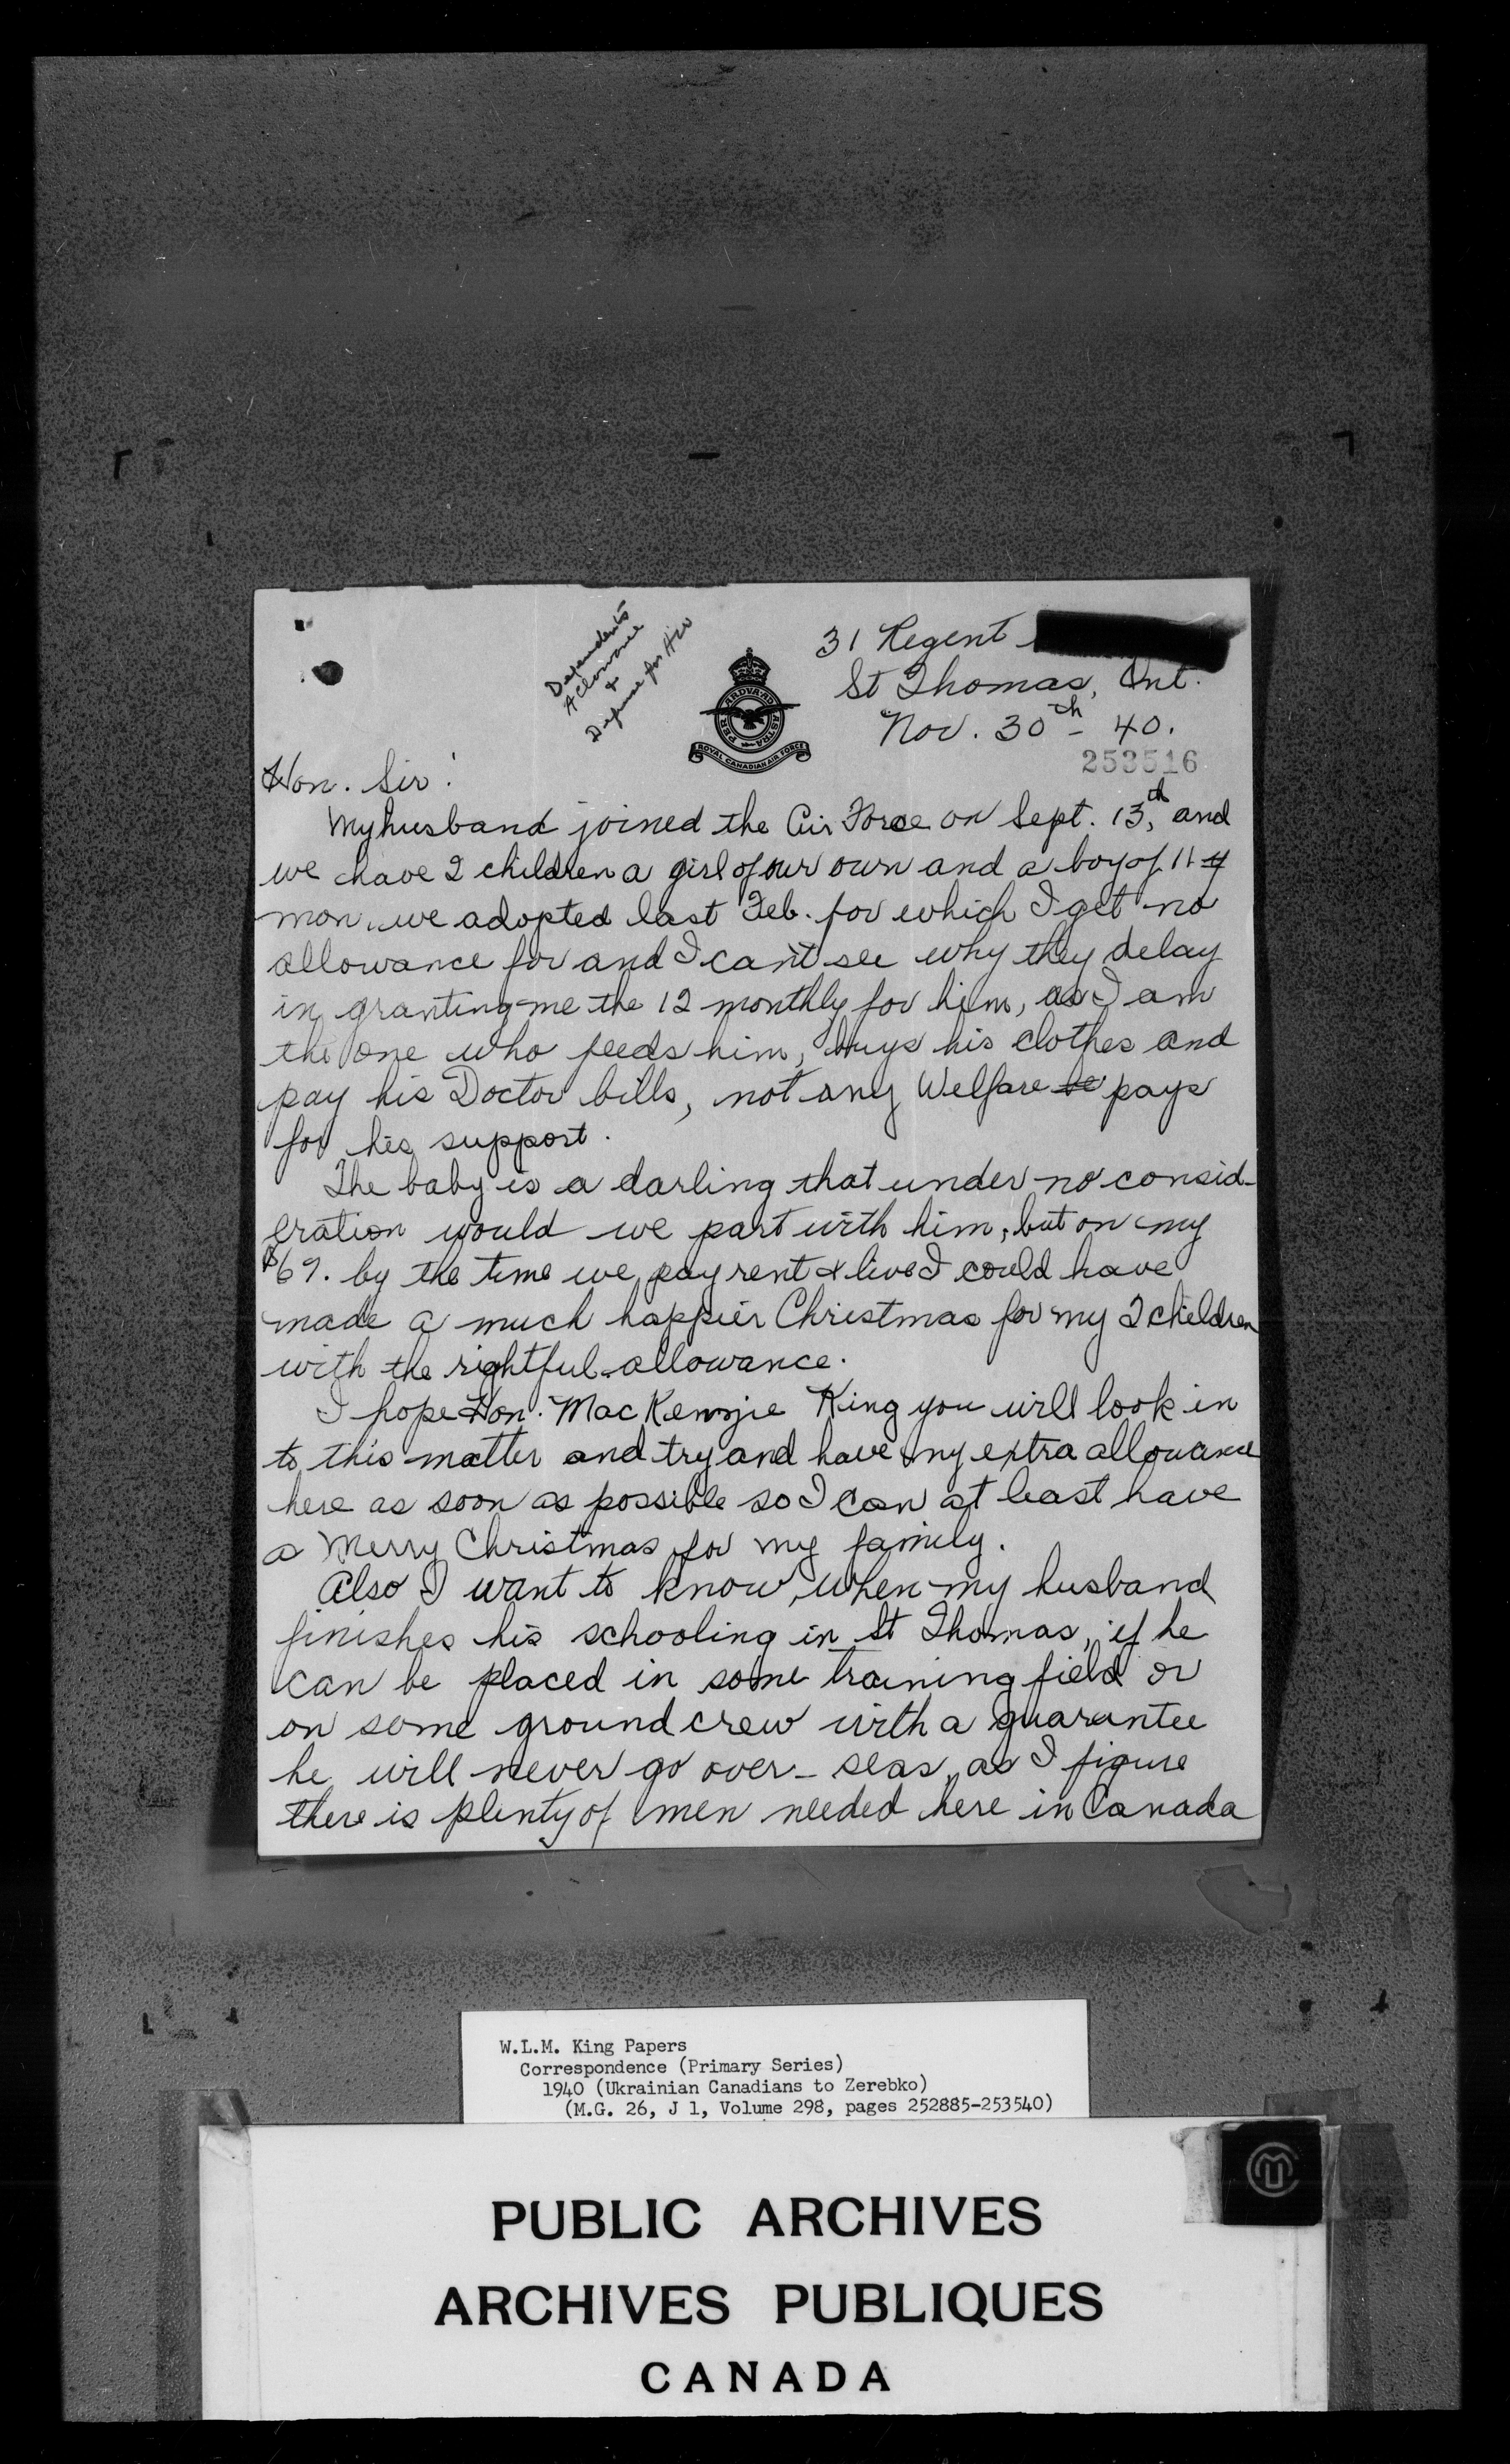 Dependents
Allowance
&
Defense for Air
31 Regent
St Thomas, Ont.
Nov. 30th - 40.
PER ARDVA AD ASTRA
ROYAL CANADIAN AIR FORCE
253516
Hon. Sir:
My husband joined the Air Force on Sept. 13th, and
we have 2 children a girl of our own and a boy of 11
mon. we adopted last Feb. for which I get no
allowance for and I can't see why they delay
in granting me the 12 monthly for him, as I am
the one who feeds him, buys his clothes and
pay his Doctor bills, not any Welfare pays
for his support.
The baby is a darling that under no consid-
eration would we part with him, but on my
$69. by the time we pay rent & live I could have
made a much happier Christmas for my 2 children
with the rightful allowance.
I hope Hon. MacKenzie King you will look in
to this matter and try and have my extra allowance
here as soon as possible so I can at least have
a Merry Christmas for my family.
Also I want to know when my husband
finishes his schooling in St Thomas, if he
can be placed in some training field or
on some ground crew with a guarantee
he will never go over-seas, as I figure
there is plenty of men needed here in Canada
W.L.M. King Papers
Correspondence (Primary Series)
1940 (Ukrainian Canadians to Zerebko)
(M.G. 26, J 1, Volume 298, pages 252885-253540)
PUBLIC ARCHIVES
ARCHIVES PUBLIQUES
CANADA